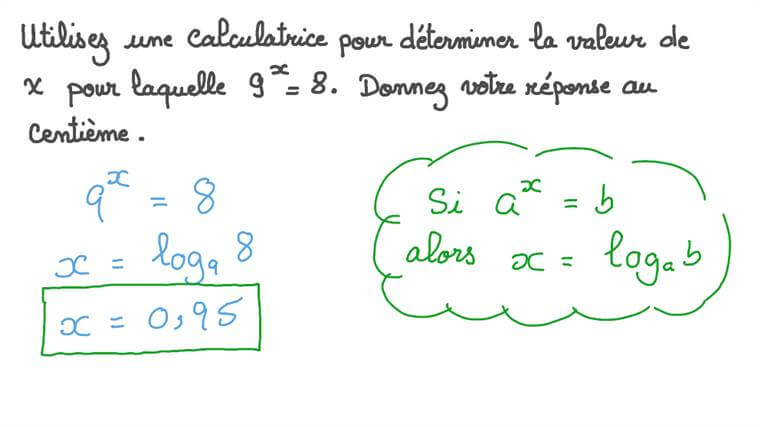 Utilisez une calculatrice pour déterminer la valeur de
x pour laquelle 9^x = 8. Donnez votre réponse au
centième.
9^x = 8
x = log₉ 8
x = 0,95
Si a^x = b
alors x = logₐ b